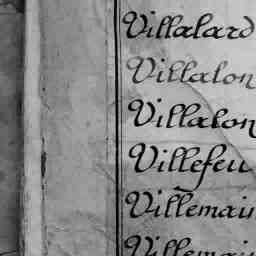 Villalard
Villalon
Villalon
Villefeu
Villemai
Villemai